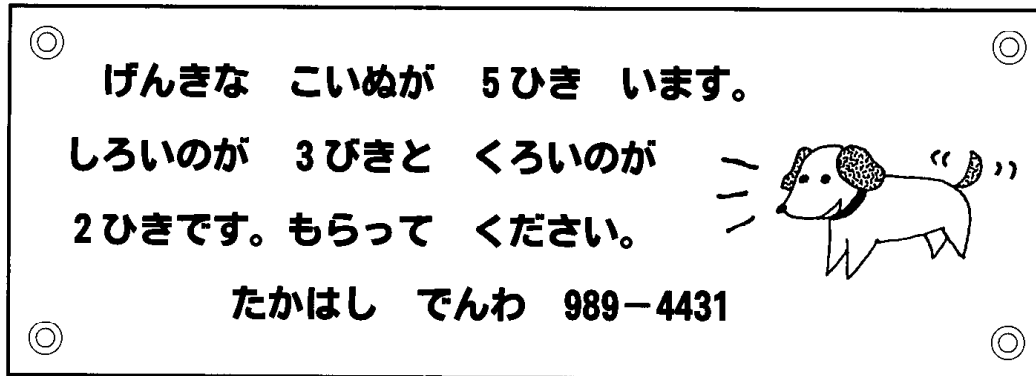 げんきな　こいぬが　5ひき　います。
しろいのが　3びきと　くろいのが
2ひきです。もらって　ください。
たかはし　でんわ　989－4431